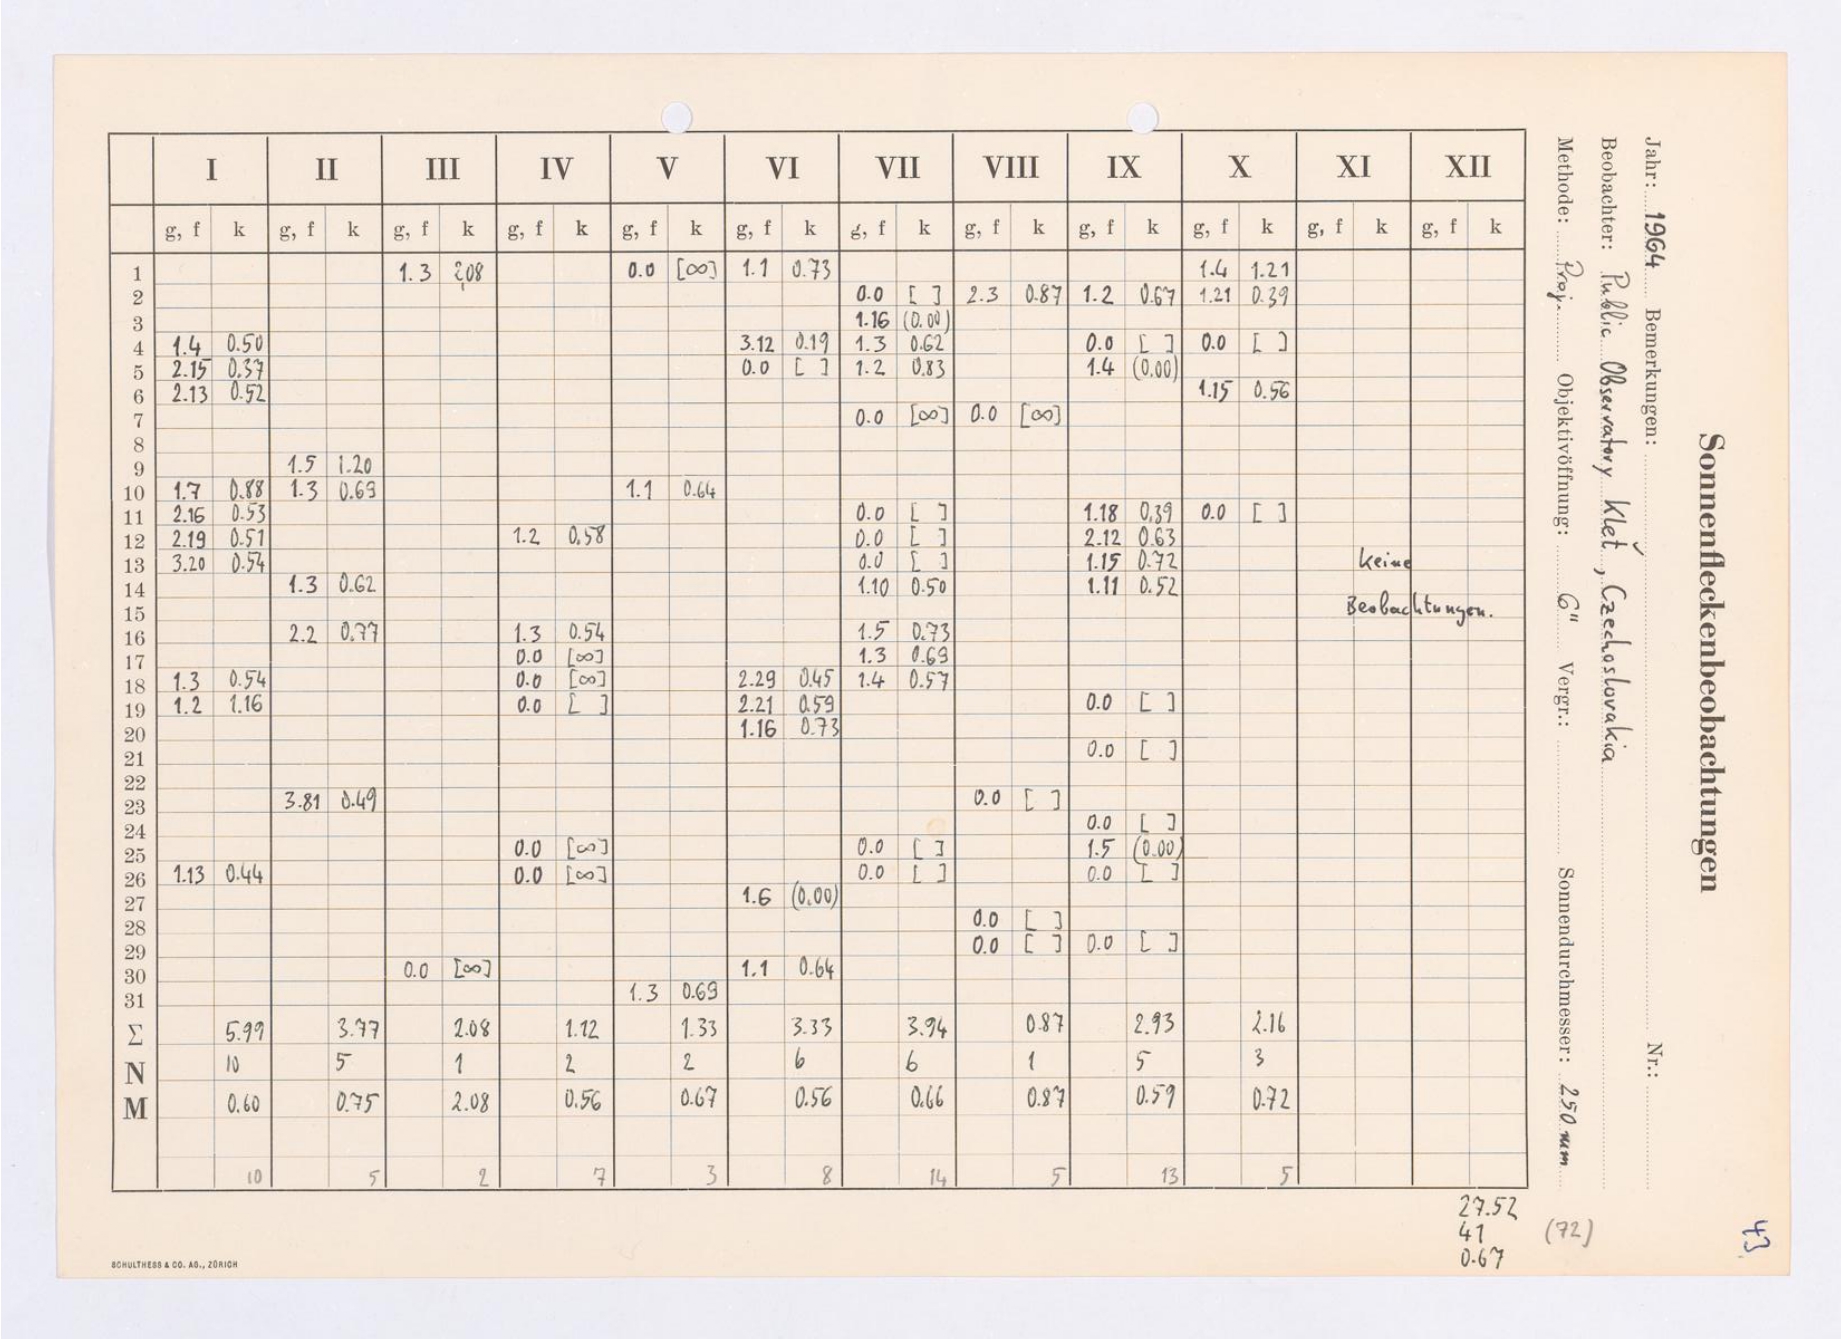 Sonnenfleckenbeobachtungen
Jahr: 1964 Bemerkungen: Nr.:
Beobachter: Public Observatory Kleť, Czechoslovakia
Methode: Proj. Objektivöffnung: 6" Vergr.: Sonnendurchmesser: 250 mm
I II III IV V VI VII VIII IX X XI XII
g, f k g, f k g, f k g, f k g, f k g, f k g, f k g, f k g, f k g, f k g, f k g, f k
1 1.3 2.08 0.0 [∞] 1.1 0.73 1.4 1.21
2 0.0 [ ] 2.3 0.87 1.2 0.67 1.21 0.39
3 1.16 (0.00)
4 1.4 0.50 3.12 0.19 1.3 0.62 0.0 [ ] 0.0 [ ]
5 2.15 0.37 0.0 [ ] 1.2 0.83 1.4 (0.00)
6 2.13 0.52 1.15 0.56
7 0.0 [∞] 0.0 [∞]
8
9 1.5 1.20
10 1.7 0.88 1.3 0.69 1.1 0.64
11 2.16 0.53 0.0 [ ] 1.18 0.39 0.0 [ ]
12 2.19 0.51 1.2 0.58 0.0 [ ] 2.12 0.63
13 3.20 0.54 0.0 [ ] 1.15 0.72 keine
14 1.3 0.62 1.10 0.50 1.11 0.52
15 Beobachtungen.
16 2.2 0.77 1.3 0.54 1.5 0.73
17 0.0 [∞] 1.3 0.69
18 1.3 0.54 0.0 [∞] 2.29 0.45 1.4 0.57
19 1.2 1.16 0.0 [ ] 2.21 0.59 0.0 [ ]
20 1.16 0.73
21 0.0 [ ]
22
23 3.81 0.49 0.0 [ ]
24 0.0 [ ]
25 0.0 [∞] 0.0 [ ] 1.5 (0.00)
26 1.13 0.44 0.0 [∞] 0.0 [ ] 0.0 [ ]
27 1.6 (0.00)
28 0.0 [ ]
29 0.0 [ ] 0.0 [ ]
30 0.0 [∞] 1.1 0.64
31 1.3 0.69
Σ 5.99 3.77 2.08 1.12 1.33 3.33 3.94 0.87 2.93 2.16
N 10 5 1 2 2 6 6 1 5 3
M 0.60 0.75 2.08 0.56 0.67 0.56 0.66 0.87 0.59 0.72
10 5 2 7 3 8 14 5 13 5
27.52
41 (72)
0.67
43
SCHULTHESS & CO. AG., ZÜRICH